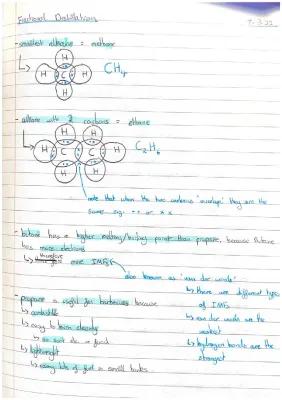 Fractional Distillation
7.3.22
- smallest alkane = methane
H
H C H
H
CH4
- alkane with 2 carbons = ethane
H H
H C C H
H H
C2H6
note that when the two carbons 'overlap' they are the
same eg. •• or x x
- butane has a higher melting/boiling point than propane, because butane
has more electrons
↳ therefore more IMFs
also known as 'van der waals'
↳ there are different types
of IMFs
↳ van der waals are the
weakest
↳ hydrogen bonds are the
strongest
- propane is useful for barbecues because
↳ combustible
↳ easy to burn cleanly
↳ so soot on food
↳ lightweight
↳ carry lots of fuel in small tanks